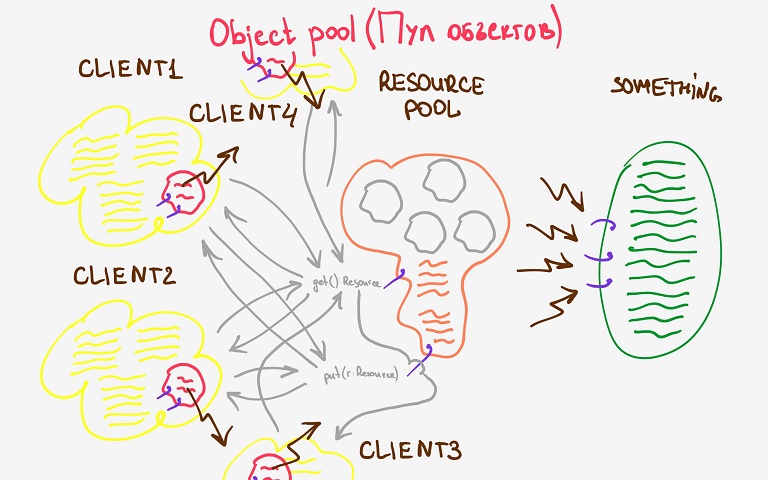 Object pool (Пул объектов)
CLIENT1
CLIENT4
RESOURCE
POOL
SOMETHING
CLIENT2
get():Resource
put(r:Resource)
CLIENT3